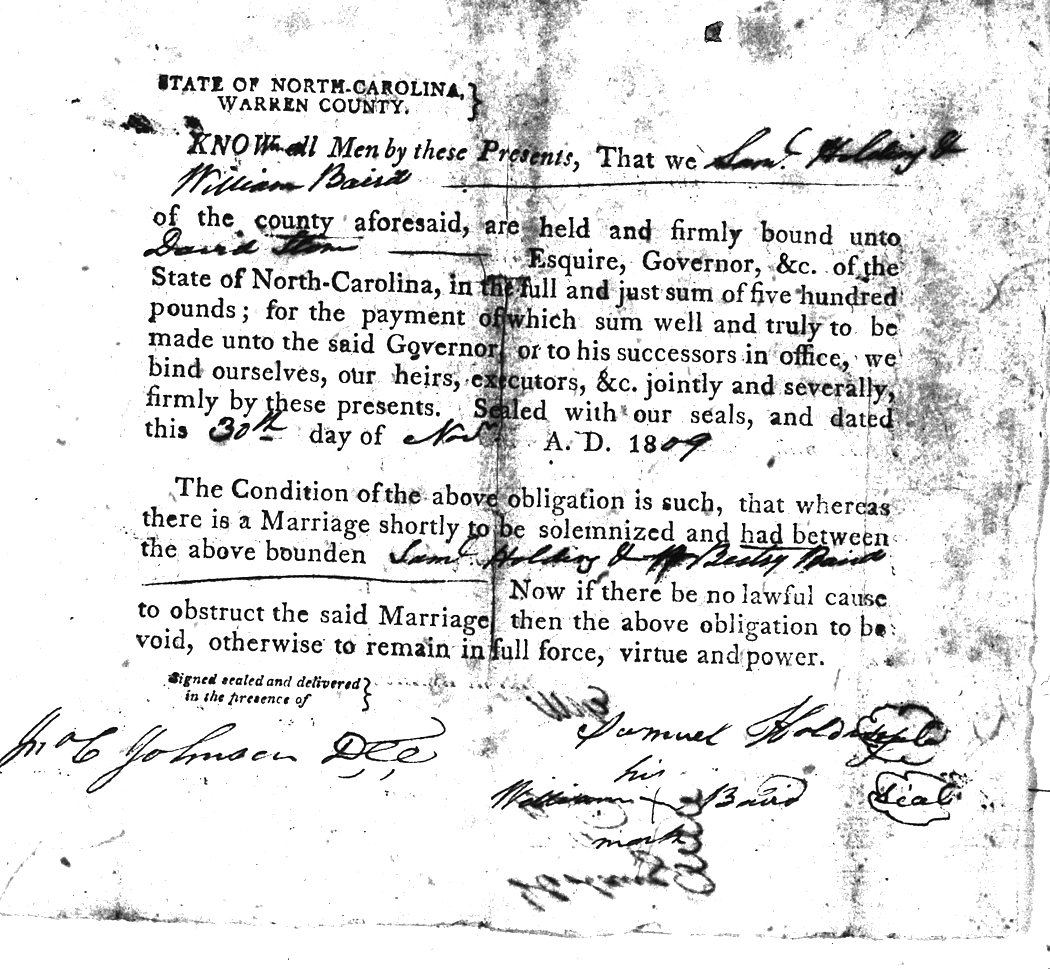 STATE OF NORTH-CAROLINA,
WARREN COUNTY.
KNOW all Men by these Presents, That we Saml. Holding &
William Baird
of the county aforesaid, are held and firmly bound unto
David Stone
Esquire, Governor, &c. of the
State of North-Carolina, in the full and just sum of five hundred
pounds; for the payment of which sum well and truly to be
made unto the said Governor, or to his successors in office, we
bind ourselves, our heirs, executors, &c. jointly and severally,
firmly by these presents. Sealed with our seals, and dated
this 30th day of Novr A. D. 1809
The Condition of the above obligation is such, that whereas
there is a Marriage shortly to be solemnized and had between
the above bounden Saml. Holding & Betsy Baird
Now if there be no lawful cause
to obstruct the said Marriage, then the above obligation to be
void, otherwise to remain in full force, virtue and power.
Signed sealed and delivered
in the presence of
Samuel Holding seal
Jno C Johnson DCC
his
William + Baird seal
mark